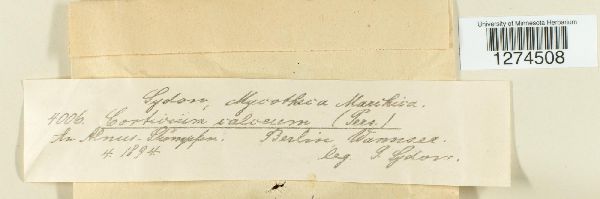 University of Minnesota Herbarium
1274508
Sydow, Mycotheca Marchica.
4006. Corticium calceum (Pers.)
An Alnus-Stümpfen. Berlin Wannsee.
4 1894 leg. P. Sydow.